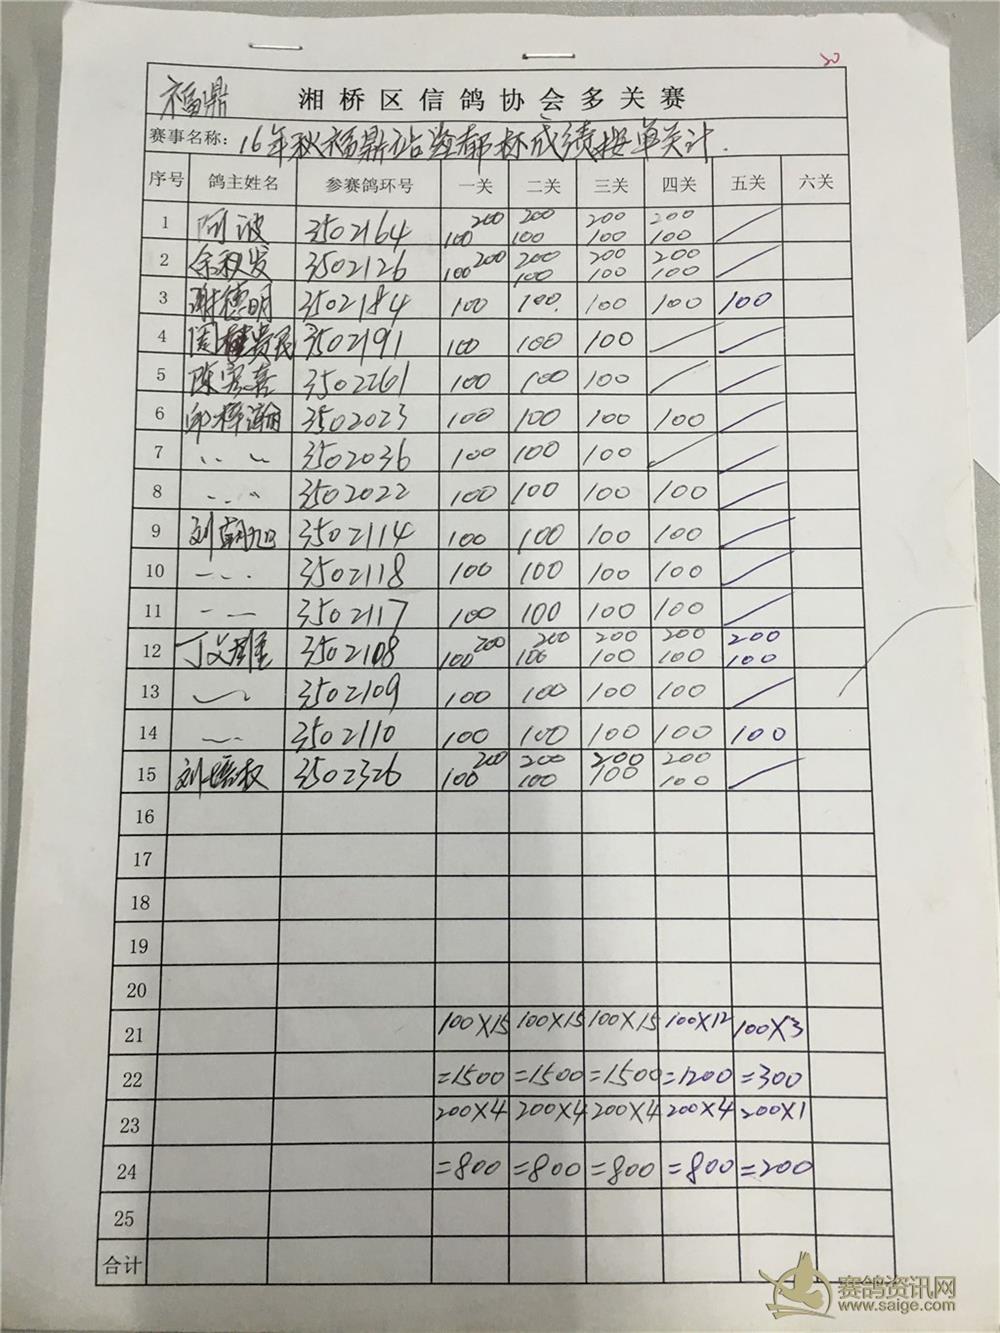 20
福鼎 湘桥区信鸽协会多关赛
赛事名称: 16年秋福鼎站 杯成绩按单关计.
序号 鸽主姓名 参赛鸽环号 一关 二关 三关 四关 五关 六关
1 阿波 3502164 100 200 200 100 200 100 200 100
2 余秋发 3502126 100 200 200 100 200 100 200 100
3 谢德明 3502184 100 100. 100 100 100
4 3502191 100 100 100
5 3502261 100 100 100
6 3502023 100 100 100 100
7 〃 〃 3502036 100 100 100
8 〃 〃 3502022 100 100 100 100
9 刘朝旭 3502114 100 100 100 100
10 3502118 100 100 100 100
11 3502117 100 100 100 100
12 丁文雄 3502108 100 200 200 100 200 100 200 100 200 100
13 3502109 100 100 100 100
14 3502110 100 100 100 100 100
15 刘培权 3502326 100 200 200 100 200 100 200 100
16
17
18
19
20
21 100X15 100X15 100X15 100X12 100X3
22 =1500 =1500 =1500 =1200 =300
23 200X4 200X4 200X4 200X4 200X1
24 =800 =800 =800 =800 =200
25
合计
赛鸽资讯网
www.saige.com